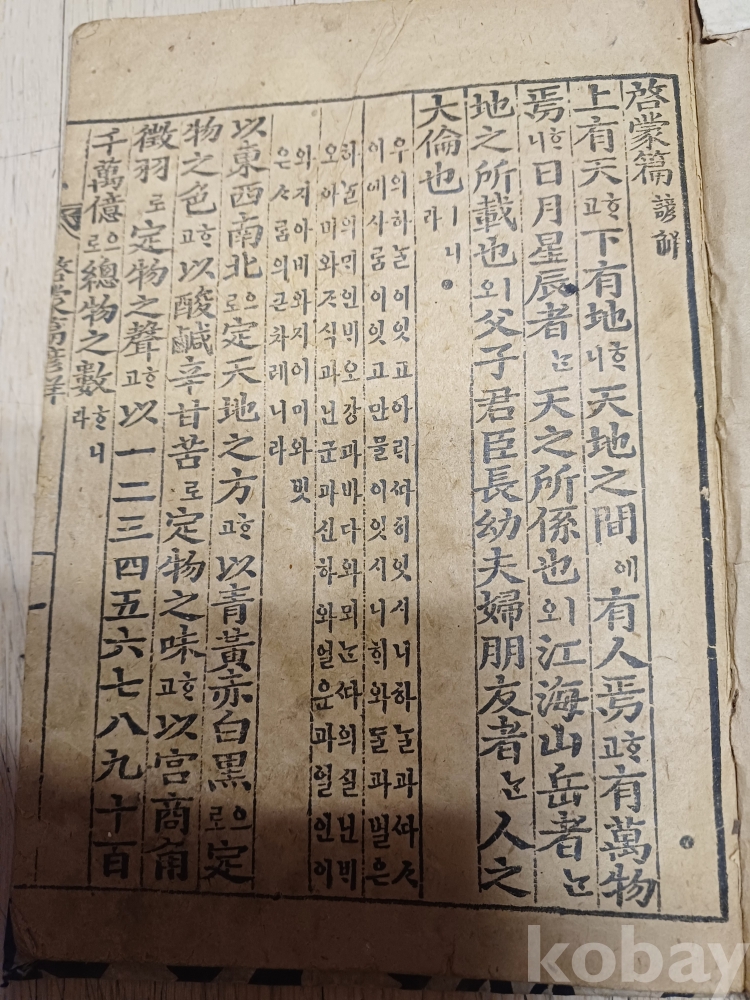 啓蒙篇 諺解
上有天ᄒᆞ고下有地ᄒᆞ니天地之間에有人焉ᄒᆞ고有萬物
焉ᄒᆞ니日月星辰者ᄂᆞᆫ天之所係也ㅣ오江海山岳者ᄂᆞᆫ
地之所載也ㅣ오父子君臣長幼夫婦朋友者ᄂᆞᆫ人之
大倫也ㅣ니라
우의하ᄂᆞᆯ이잇고아ᄅᆡᄯᅡ히잇시니하ᄂᆞᆯ과ᄯᅡᄉᆞ
이에사ᄅᆞᆷ이잇고만믈이잇시니ᄒᆡ와ᄃᆞᆯ과별은
하ᄂᆞᆯ의ᄆᆡ인ᄇᆡ오강과바다와뫼ᄂᆞᆫᄯᅡ의실닌ᄇᆡ
오아미와ᄌᆞ식과닌군과신하와얼운과얼인이
와지아비와지어미와벗
은ᄉᆞᄅᆞᆷ의큰차레니라
以東西南北으로定天地之方ᄒᆞ고以青黃赤白黑으로定
物之色ᄒᆞ고以酸鹹辛甘苦로定物之味ᄒᆞ고以宮商角
徵羽로定物之聲ᄒᆞ고以一二三四五六七八九十百
千萬億으로總物之數ᄒᆞ니라
啓蒙篇諺解 一
kobay